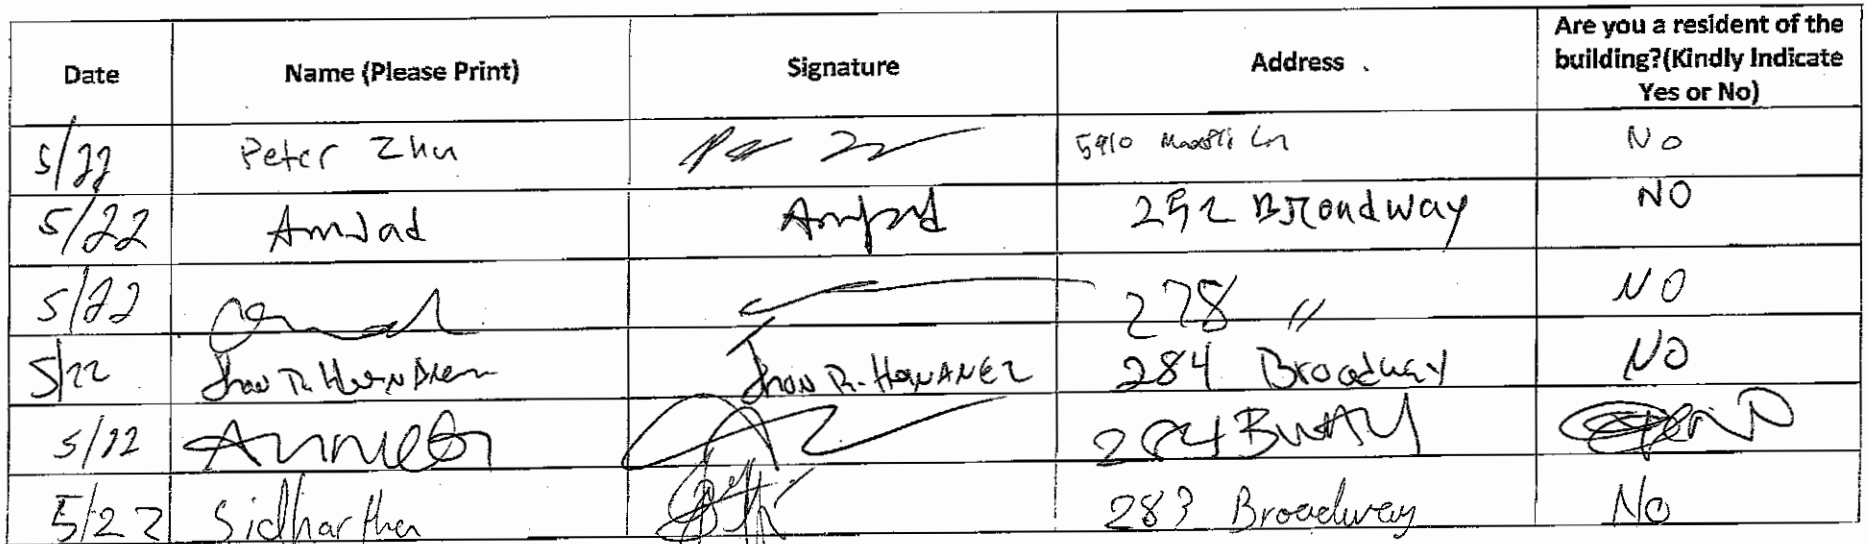 Date Name (Please Print) Signature Address Are you a resident of the building?(Kindly Indicate Yes or No)
5/22 Peter Zhu 5910 Ln No
5/22 Amjad Amjad 292 Broadway NO
5/22 278 〃 NO
5/22 Jhon R. 284 Broadway NO
5/22 284 BWAY NO
5/22 Sidhartha 283 Broadway No